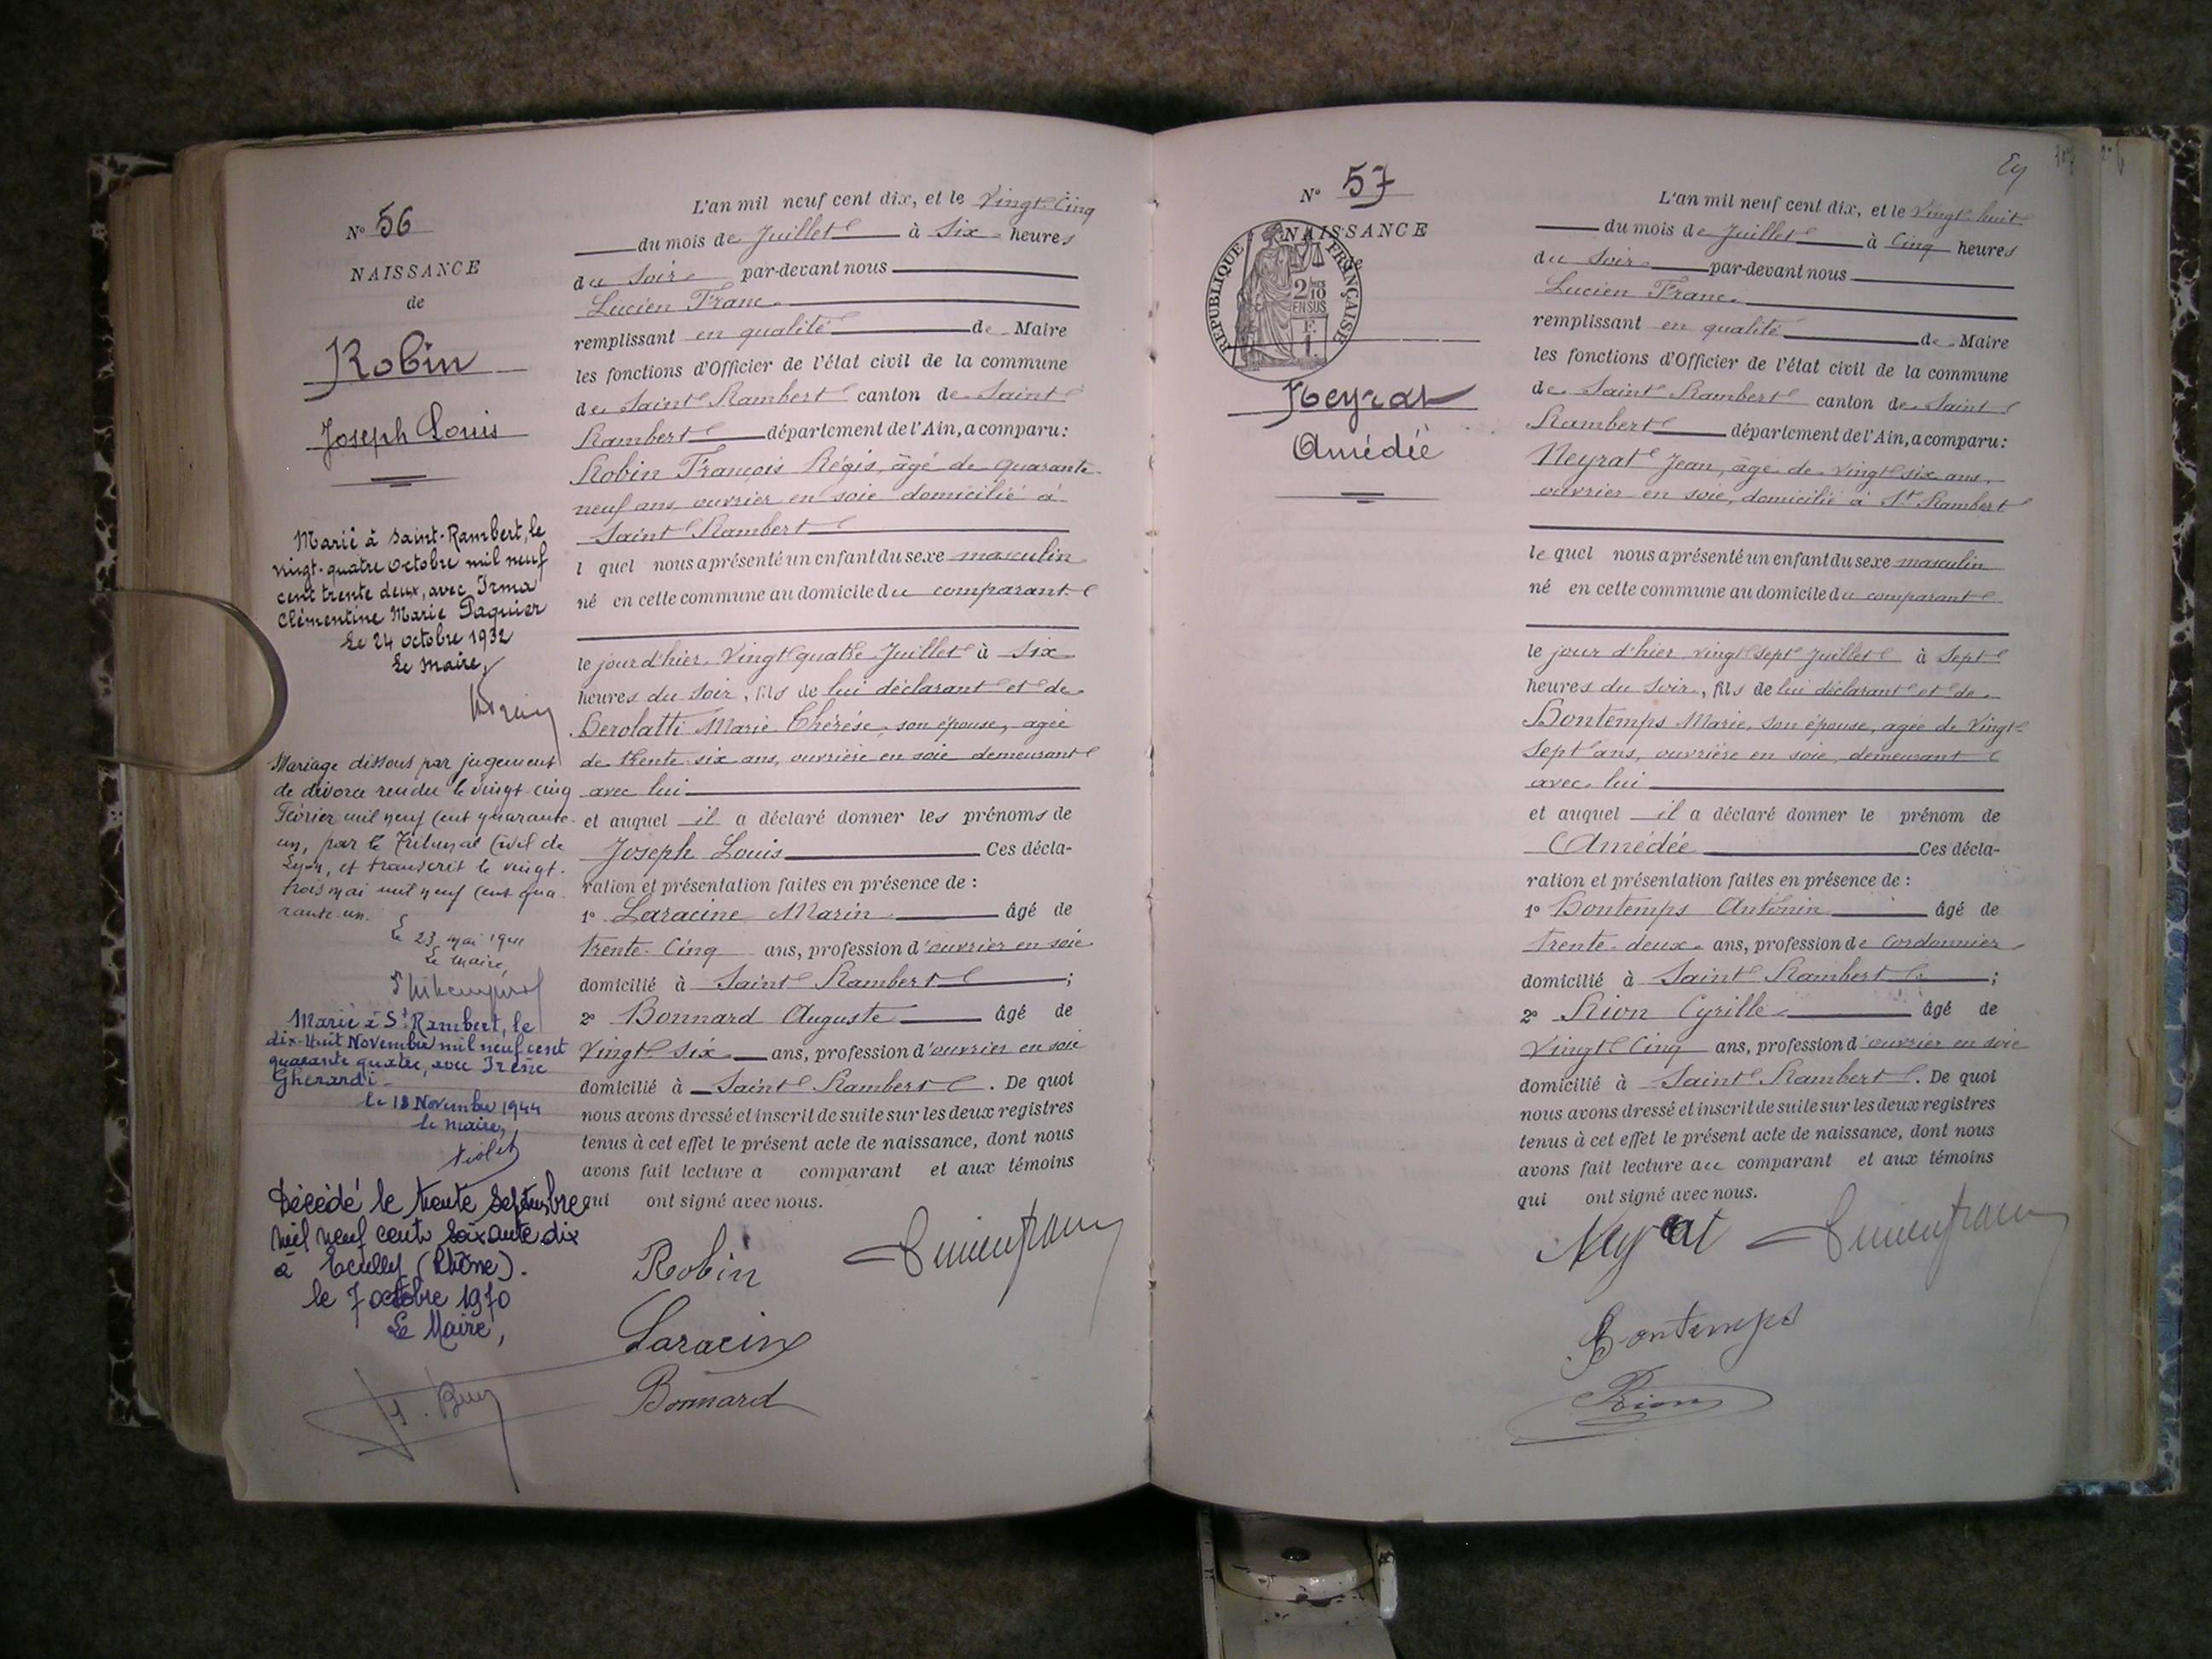 N° 56
NAISSANCE
de
Robin
Joseph Louis
Marié à Saint-Rambert, le
vingt-quatre Octobre mil neuf
cent trente deux, avec Irma
Clémentine Marie Paquier
Le 24 octobre 1932
Le Maire,
Mariage dissous par jugement
de divorce rendu le vingt cinq
Février mil neuf cent quarante-
un, par le Tribunal Civil de
Lyon, et transcrit le vingt-
trois mai mil neuf cent qua-
rante-un.
Le 23 mai 1941
Le Maire,
Marié à St Rambert, le
dix-huit Novembre mil neuf cent
quarante quatre, avec Irène
Gherardi-
le 18 Novembre 1944
le maire,
Violet
Décédé le trente Septembre
mil neuf cent soixante dix
à Ecully (Rhône).
le 7 octobre 1970
Le Maire,
L'an mil neuf cent dix, et le Vingt-Cinq
du mois de Juillet à Six heures
du Soir par-devant nous
Lucien Franc
remplissant en qualité de Maire
les fonctions d'Officier de l'état civil de la commune
de Saint Rambert canton de Saint
Rambert département de l'Ain, a comparu:
Robin François Régis, âgé de quarante-
neuf ans, ouvrier en soie domicilié à
Saint Rambert
l quel nous a présenté un enfant du sexe masculin
né en cette commune au domicile du comparant
le jour d'hier, Vingt quatre Juillet à Six
heures du Soir, fils de lui déclarant et de
Berolatti Marie Thérèse, son épouse, agée
de trente six ans, ouvrière en soie demeurant
avec lui
et auquel il a déclaré donner les prénoms de
Joseph Louis Ces décla-
ration et présentation faites en présence de :
1° Laracine Marin âgé de
trente-Cinq ans, profession d'ouvrier en soie
domicilié à Saint Rambert ;
2° Bonnard Auguste âgé de
Vingt Six ans, profession d'ouvrier en soie
domicilié à Saint Rambert. De quoi
nous avons dressé et inscrit de suite sur les deux registres
tenus à cet effet le présent acte de naissance, dont nous
avons fait lecture a comparant et aux témoins
qui ont signé avec nous.
Robin Lucien Franc
Laracine
Bonnard
N° 57
NAISSANCE
de
RÉPUBLIQUE FRANÇAISE
2/10
EN SUS
F.
1.
Neyrat
Amédée
L'an mil neuf cent dix, et le Vingt-huit
du mois de Juillet à Cinq heures
du Soir par-devant nous
Lucien Franc
remplissant en qualité de Maire
les fonctions d'Officier de l'état civil de la commune
de Saint Rambert canton de Saint
Rambert département de l'Ain, a comparu:
Neyrat Jean, âgé de vingt six ans,
ouvrier en soie, domicilié à St Rambert
le quel nous a présenté un enfant du sexe masculin
né en cette commune au domicile du comparant
le jour d'hier vingt sept Juillet à Sept
heures du Soir, fils de lui déclarant et de
Bontemps Marie, son épouse, agée de Vingt
Sept ans, ouvrière en soie, demeurant
avec lui
et auquel il a déclaré donner le prénom de
Amédée Ces décla-
ration et présentation faites en présence de :
1° Bontemps Antonin âgé de
trente-deux ans, profession de cordonnier
domicilié à Saint Rambert ;
2° Rion Cyrille âgé de
Vingt Cinq ans, profession d'ouvrier en soie
domicilié à Saint Rambert. De quoi
nous avons dressé et inscrit de suite sur les deux registres
tenus à cet effet le présent acte de naissance, dont nous
avons fait lecture au comparant et aux témoins
qui ont signé avec nous.
Neyrat Lucien Franc
Bontemps
Rion